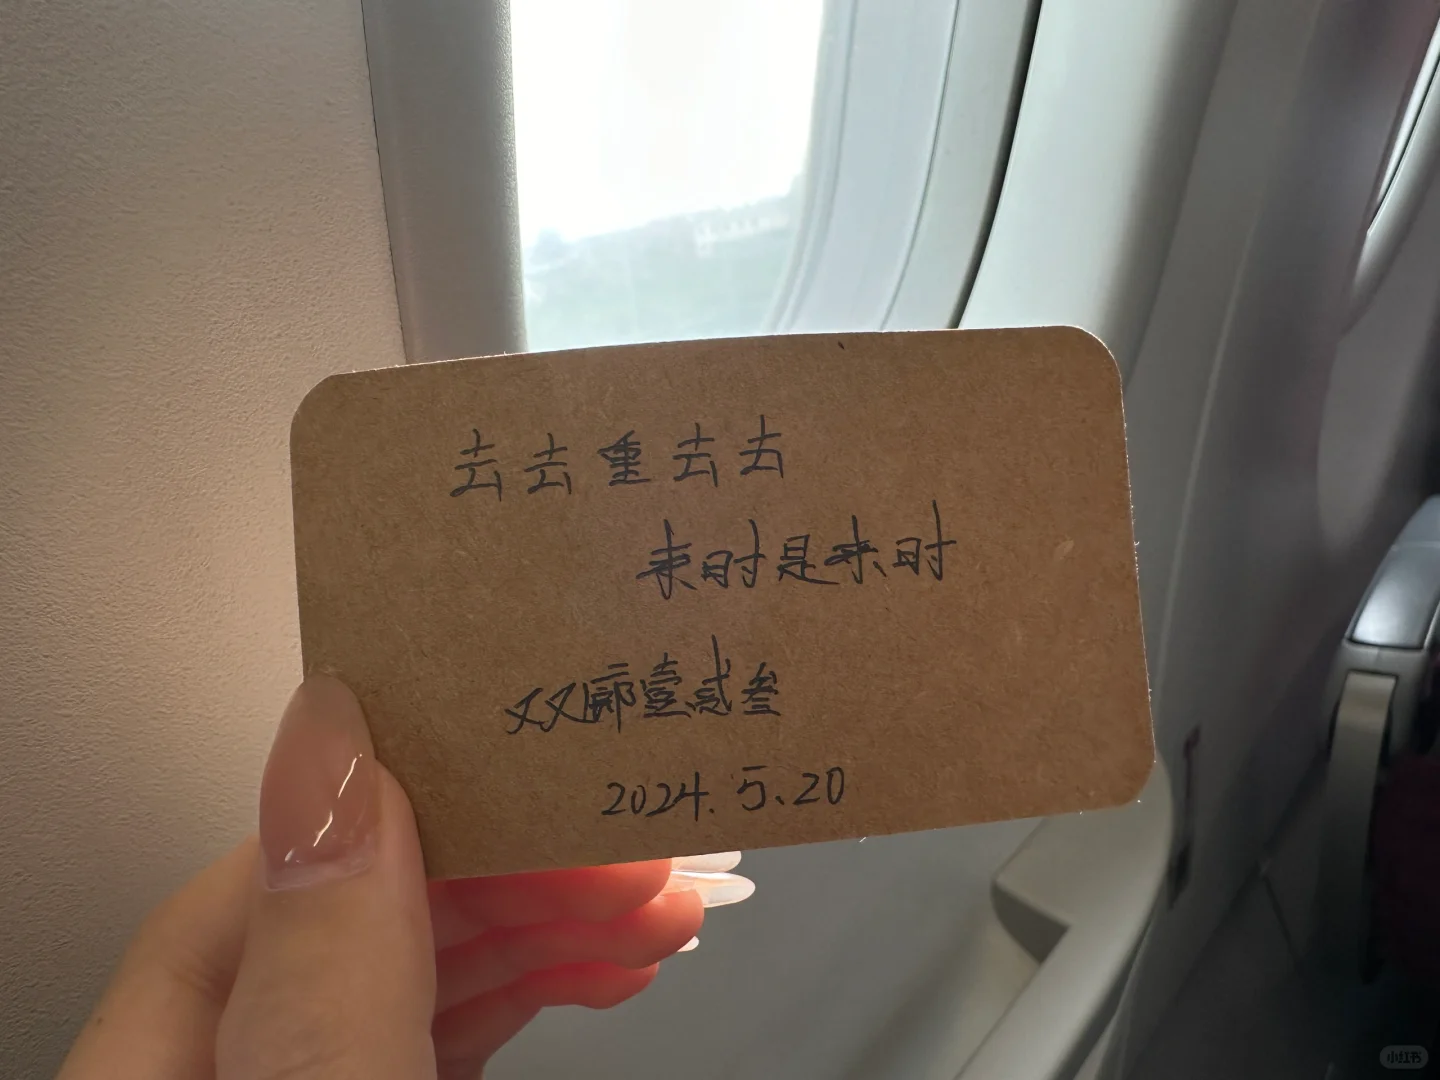 去去重去去
来时是来时
双廊壹贰叁
2024.5.20
小红书